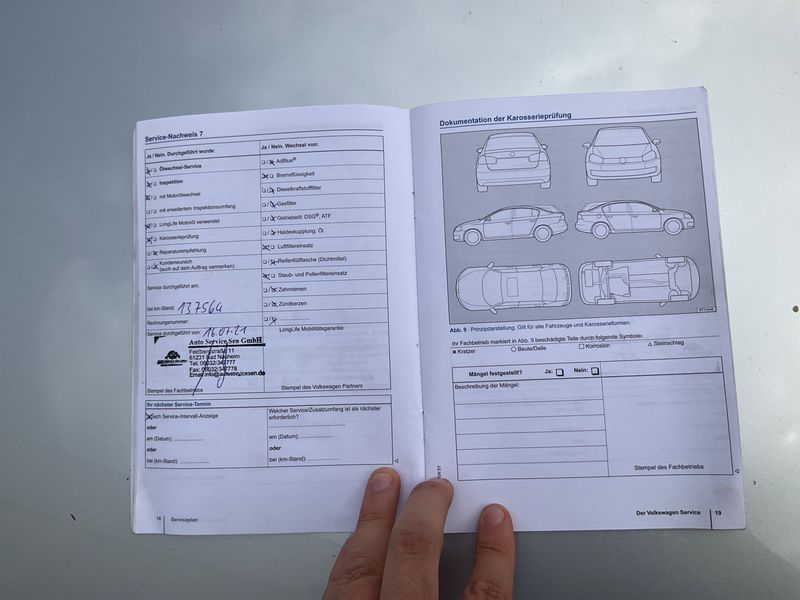 Service-Nachweis 7
Ja / Nein. Durchgeführt wurde:
Ölwechsel-Service
Inspektion
mit Motorölwechsel
mit erweitertem Inspektionsumfang
LongLife Motoröl verwendet
Karosserieprüfung
Reparaturempfehlung
Kundenwunsch
(auch auf dem Auftrag vermerken)
Service durchgeführt am:
bei km-Stand: 137564
Rechnungsnummer:
Service durchgeführt von: 16.07.21
Auto Service Sen GmbH
Feldbergstraße 11
61231 Bad Nauheim
Tel: 06032/347777
Fax: 06032/347778
Email:info@autoservicesen.de
Stempel des Fachbetriebs
Ja / Nein. Wechsel von:
AdBlue®
Bremsflüssigkeit
Dieselkraftstofffilter
Gasfilter
Getriebeöl: DSG®, ATF
Haldexkupplung: Öl
Luftfiltereinsatz
Reifenfüllflasche (Dichtmittel)
Staub- und Pollenfiltereinsatz
Zahnriemen
Zündkerzen
LongLife Mobilitätsgarantie:
Stempel des Volkswagen Partners
Ihr nächster Service-Termin
nach Service-Intervall-Anzeige
oder
am (Datum):
oder
bei (km-Stand):
Welcher Service/Zusatzumfang ist als nächster
erforderlich?
am (Datum):
oder
bei (km-Stand):
18 Serviceplan
Dokumentation der Karosserieprüfung
Abb. 9 Prinzipdarstellung. Gilt für alle Fahrzeuge und Karosserieformen.
Ihr Fachbetrieb markiert in Abb. 9 beschädigte Teile durch folgende Symbole:
x Kratzer ○ Beule/Delle □ Korrosion △ Steinschlag
Mängel festgestellt? Ja: Nein:
Beschreibung der Mängel:
Stempel des Fachbetriebs
Der Volkswagen Service 19